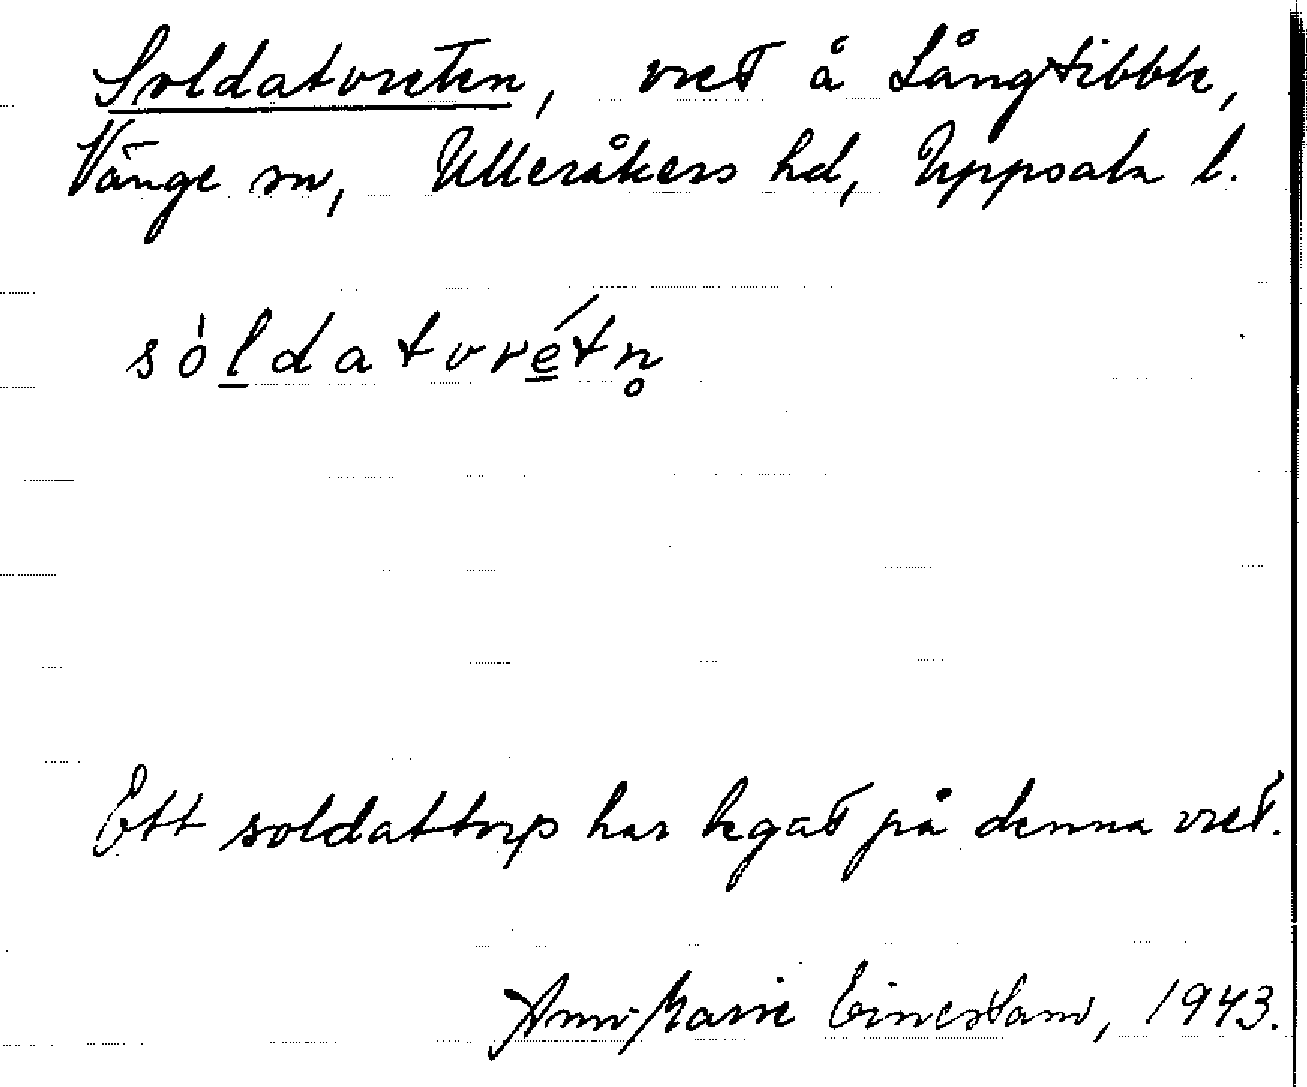 Soldatvreten, vret å Långtibble,
Vänge sn, Ulleråkers hd, Uppsala l.
sòldatvrétn̥
Ett soldattorp har legat på denna vret.
Ann-Marie Einerstam, 1943.